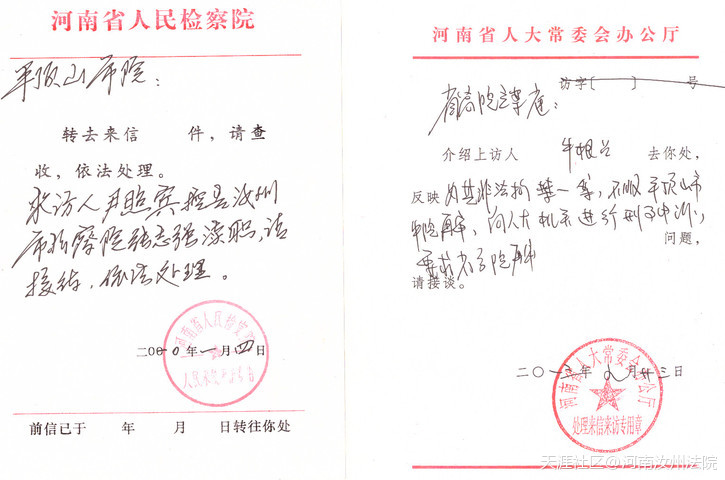 河南省人民检察院
平顶山市院：
转去来信　　件，请查
收，依法处理。
来访人尹照宾控告汝州
市检察院张志强渎职，请
接待，依法处理。
河南省人民检察院
二000年一月四日
前信已于　　年　　月　　日转往你处
河南省人大常委会办公厅
访字〔　　〕　　号
省高院立案庭：
介绍上访人　牛根兰　去你处，
反映
不服平顶山市
再审，向人大机关进行刑事申诉，
问题，
要求省高院再审
请接谈。
河南省人大常委会办公厅
处理来信来访专用章
二〇一三年　月廿三日
天涯社区@河南汝州法院